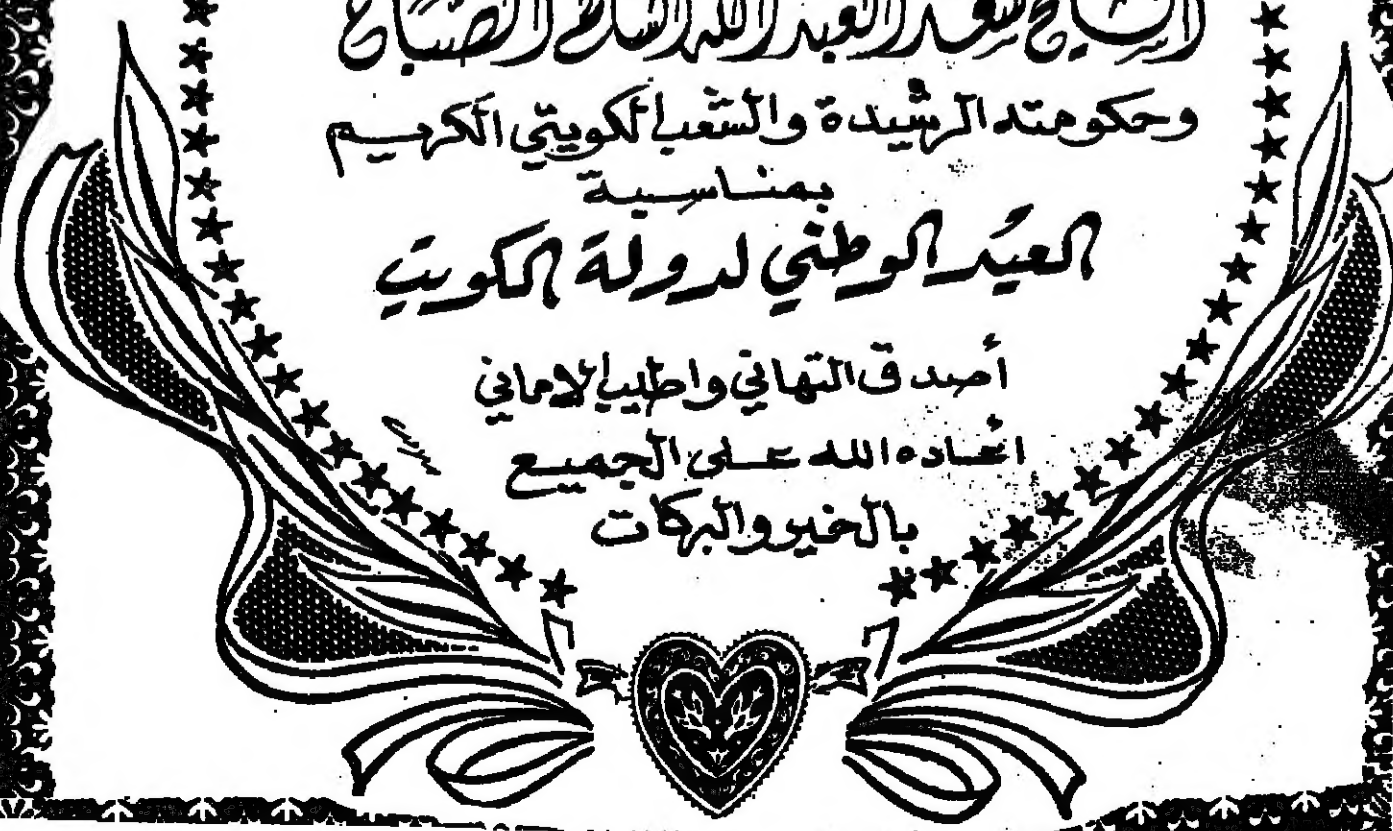 الشيخ سعد العبد الله السالم الصباح
وحكومته الرشيدة والشعب الكويتي الكريم
بمناسبة
العيد الوطني لدولة الكويت
أصدق التهاني واطيب الاماني
اعاده الله على الجميع
بالخير والبركات